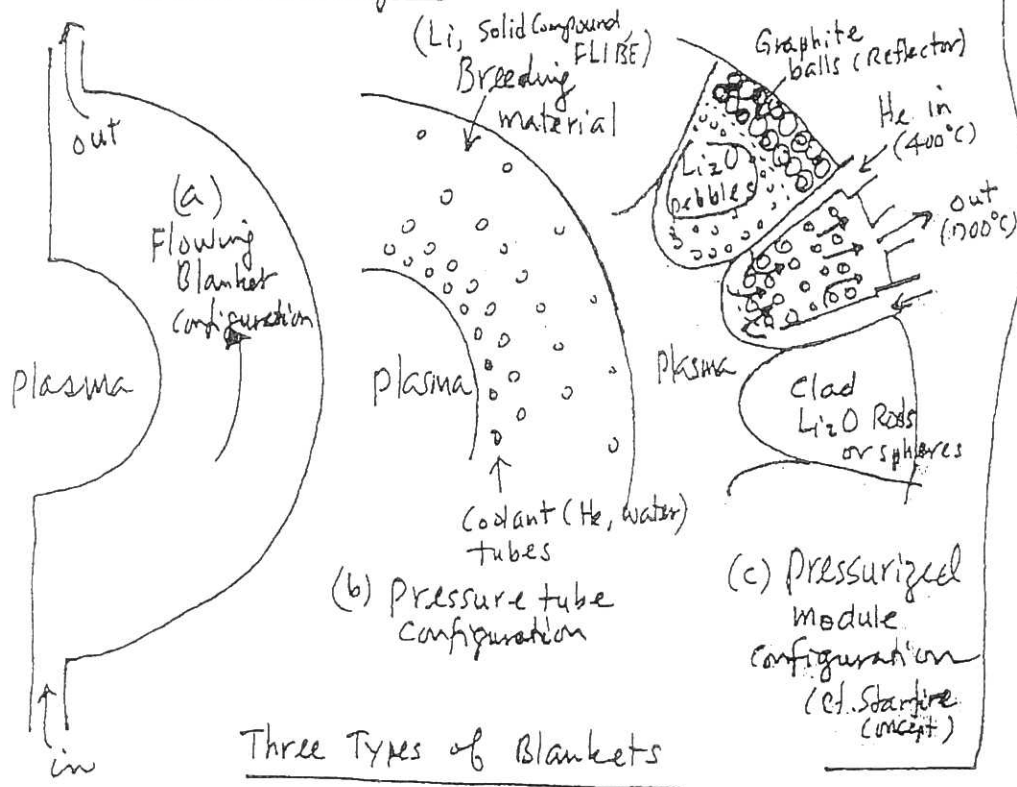 out
(a)
Flowing
Blanket
Configuration
Plasma
in
(Li, Solid Compound,
FLIBE)
Breeding
material
Plasma
Coolant (He, water)
tubes
(b) Pressure tube
Configuration
Graphite
balls (Reflector)
He in
(400°C)
Li2O
pebbles
out
(700°C)
Plasma
Clad
Li2O Rods
or spheres
(c) Pressurized
Module
Configuration
(Cf. Starfire
Concept)
Three Types of Blankets